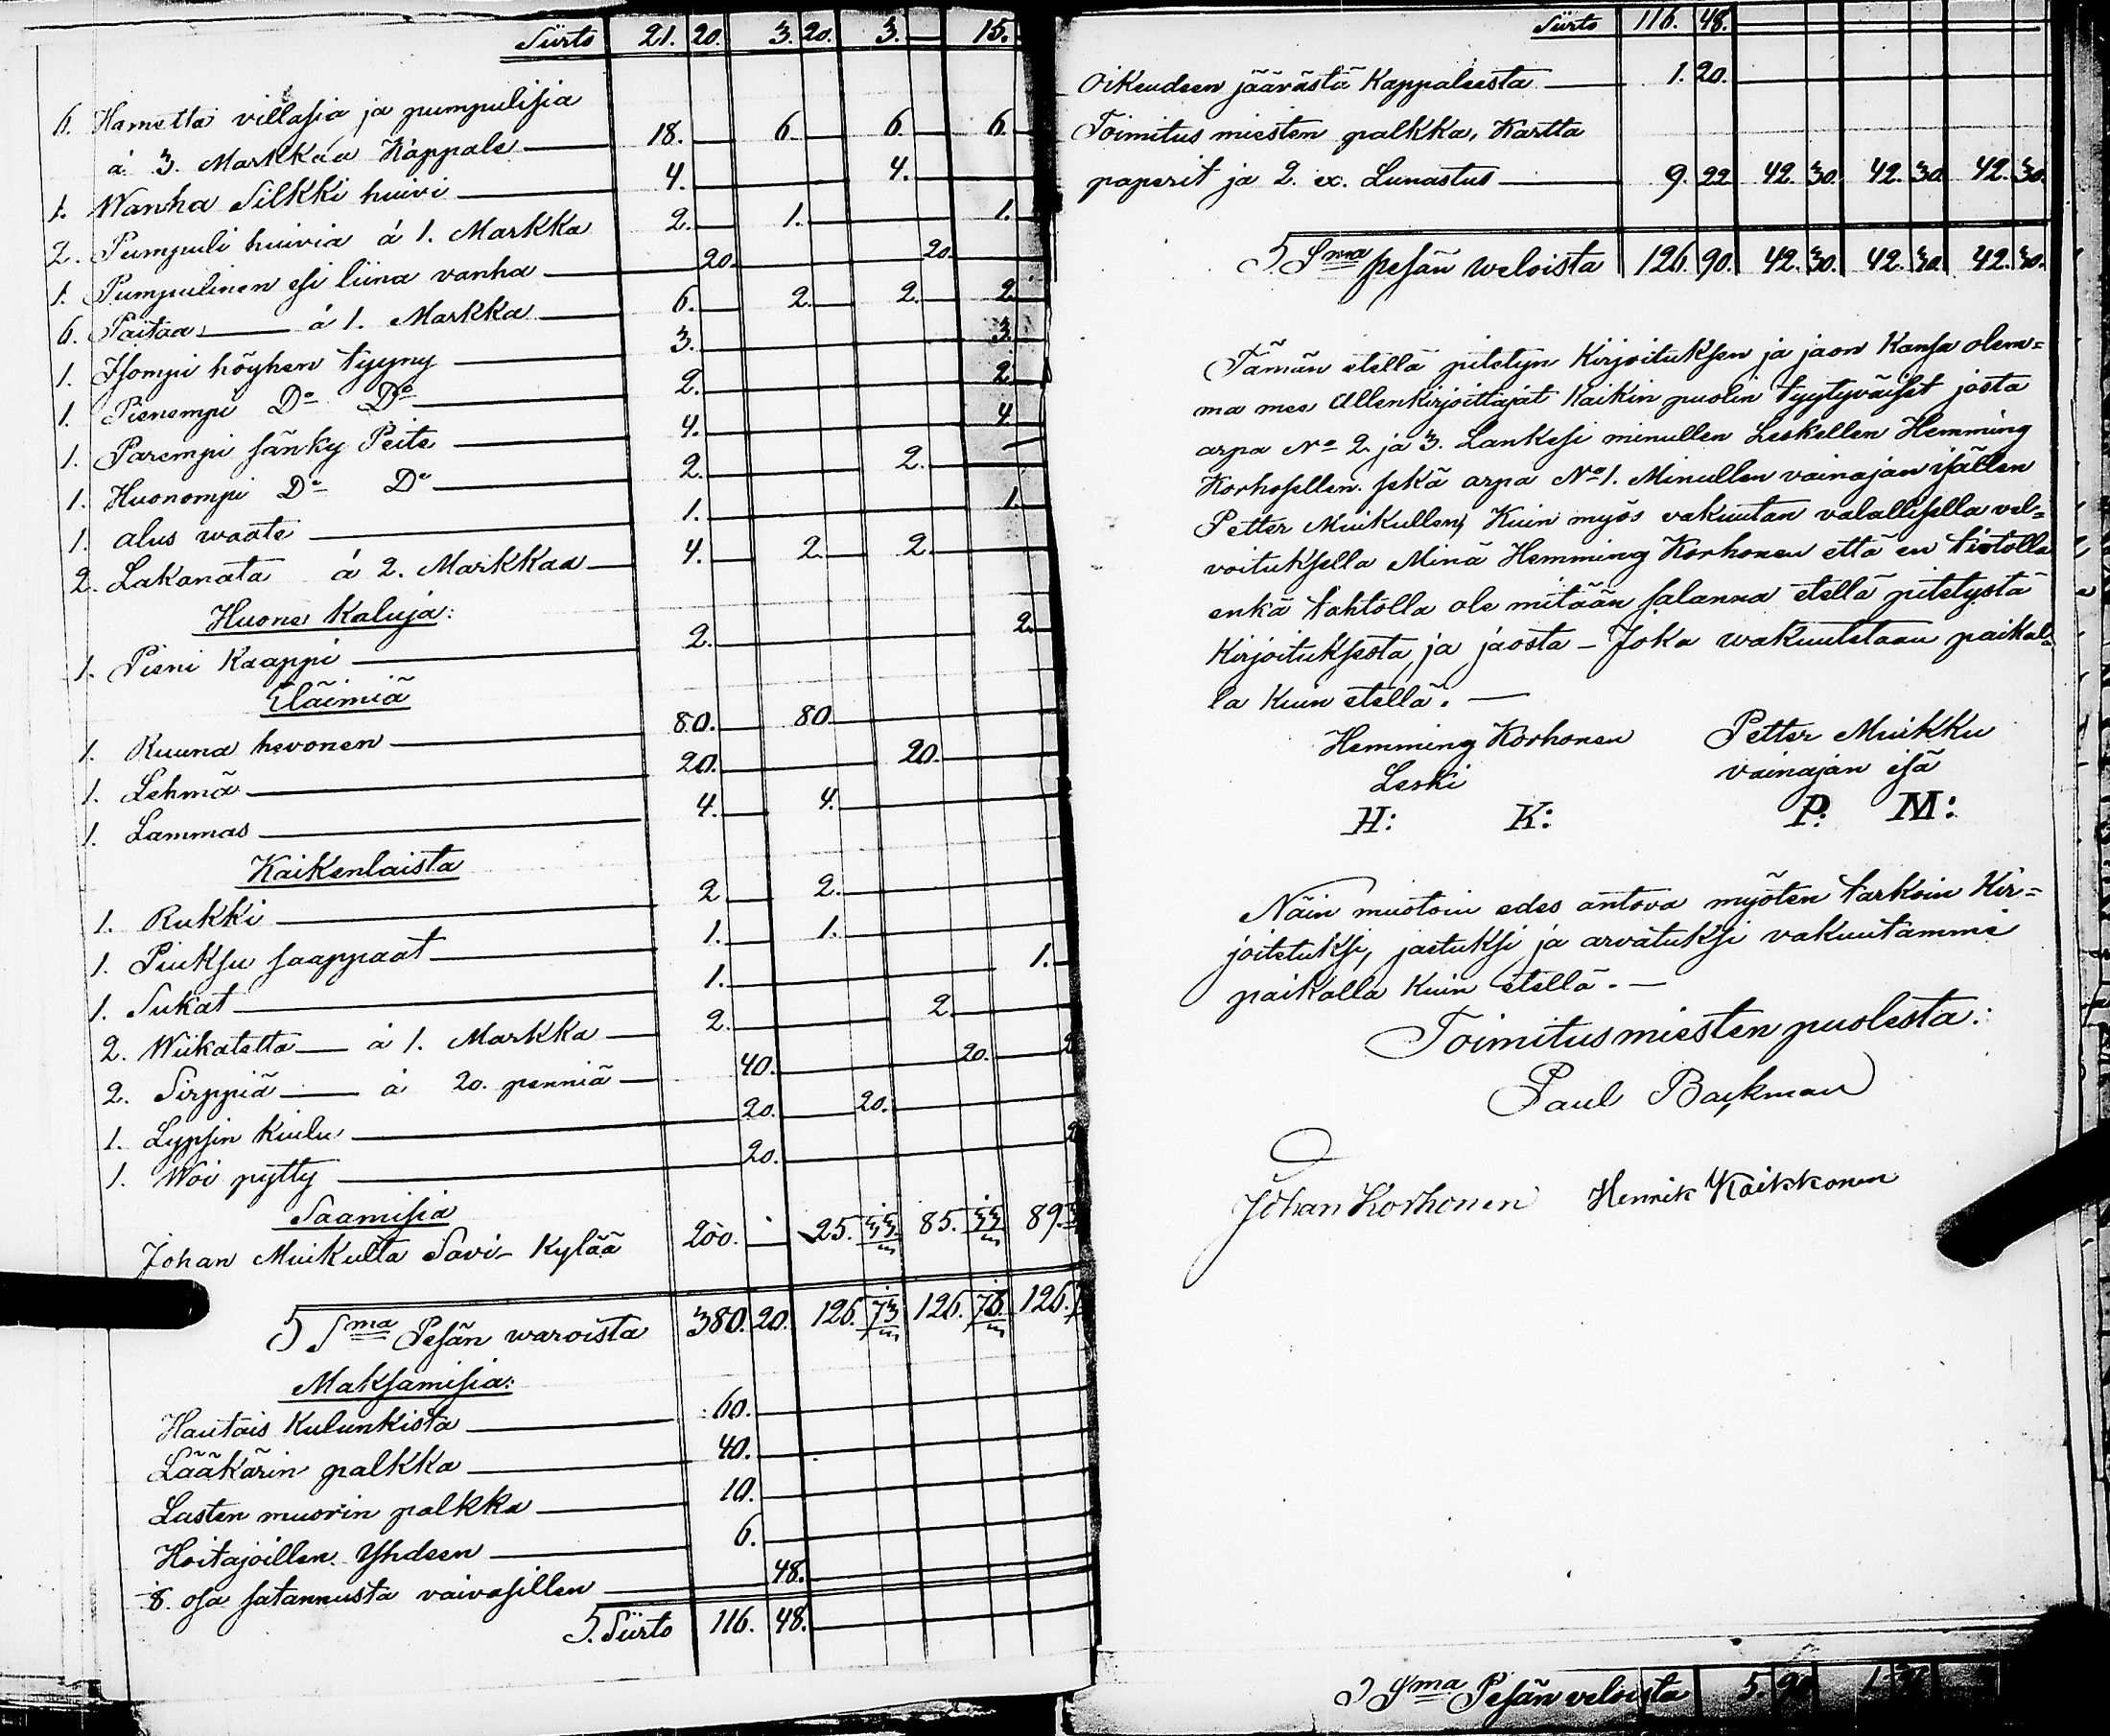 Siirto 21. 20. 3. 20. 3. — 15.
6. Hametta villasia ja pumpulisia
á 3. Markkaa Kappale — 18. 6. 6. 6.
1. Wanha Silkki huivi — 4. 4.
2. Pumpuli huivia á 1. Markka 2. 1. 1.
1. Pumpulinen esi liina vanha — 20. 20.
6. Paitaa — á 1. Markka — 6. 2. 2. 2.
1. Isompi höyhen tyyny — 3. 3.
1. Pienempi Do Do — 2. 2.
1. Parempi sänky Peite — 4. 4.
1. Huonompi Do Do — 2. 2.
1. alus waate — 1. 1.
2. Lakanata á 2. Markkaa — 4. 2. 2.
Huone Kaluja:
1. Pieni Kaappi — 2. 2.
Eläimiä
1. Ruuna hevonen — 80. 80.
1. Lehmä — 20. 20.
1. Lammas — 4. 4.
Kaikenlaista
1. Rukki — 2 2.
1. Piuksu saappaat — 1. 1.
1. Sukat — 1. 1.
2. Wiikatetta — á 1. Markka — 2. 2.
2. Sirppiä — á 20. penniä — 40. 20. 2
1. Lypsin Kiulu — 20. 20.
1. Woi pytty — 20. 2
Saamisia
Johan Muikulta Savi-Kylää 200. — 25. 33 85. 33 89.
Sma Pesän waroista 380. 20. 126. 73 126. 73 126.
Maksamisia:
Hautais Kulunkista — 60.
Lääkärin palkka — 40.
Lasten muorin palkka — 10.
Hoitajoillen Yhdeen — 6.
8. osa satannusta vaivasillen — 48.
S. Siirto 116. 48.
Siirto 116. 48.
Oikeudeen jäävästä Kappaleesta — 1. 20.
Toimitus miesten palkka, Kartta
paperit ja 2. ex. Lunastus — 9. 22 42. 30. 42. 30. 42. 30.
Sma pesän weloista 126. 90. 42. 30. 42. 30. 42. 30.
Tämän etellä pitetyn Kirjoituksen ja jaon Kansa olem=
ma mes Allenkirjoittajat Kaikin puolin tyytyväiset josta
arpa No 2 ja 3. Lankesi minullen Leskellen Hemming
Korhosellen. sekä arpa No 1. Minullen vainajan isällen
Petter Muikullen, Kuin myös vakuutan valallisella vel=
voituksella Minä Hemming Korhonen että en tietolla
enkä tahtolla ole mitään salanna etellä pitetystä
Kirjoituksesta ja jaosta – Joka wakuutetaan paikal=
la Kuin etellä. —
Hemming Korhonen Petter Muikku
Leski vainajan isä
H: K: P: M:
Näin muotoin edes antova myöten tarkoin Kir=
joitetuksi, jaetuksi ja arvatuksi vakuutamme
paikalla Kuin etellä. —
Toimitus miesten puolesta:
Paul Backman
Johan Korhonen Henrik Kaikkonen
Sma Pesän veloista 5. 90